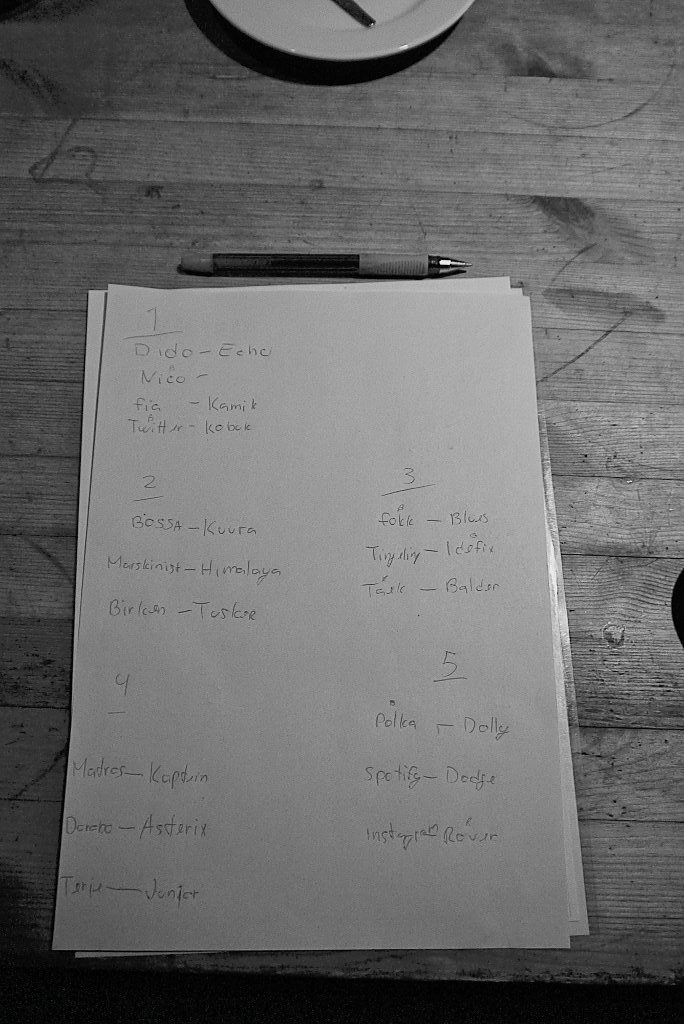 1
Dido - Echo
Nico -
fia - Kamik
Twitter - Kobuk
2
BOSSA - Kuura
Himalaya
Birken - Tuskee
3
fokk - Blues
Tinyeliny - Idefix
Balder
4
Matros - Kaptein
Asterix
Terje - Junior
5
Polka - Dolly
Spotify - Dodge
Instagram Rover